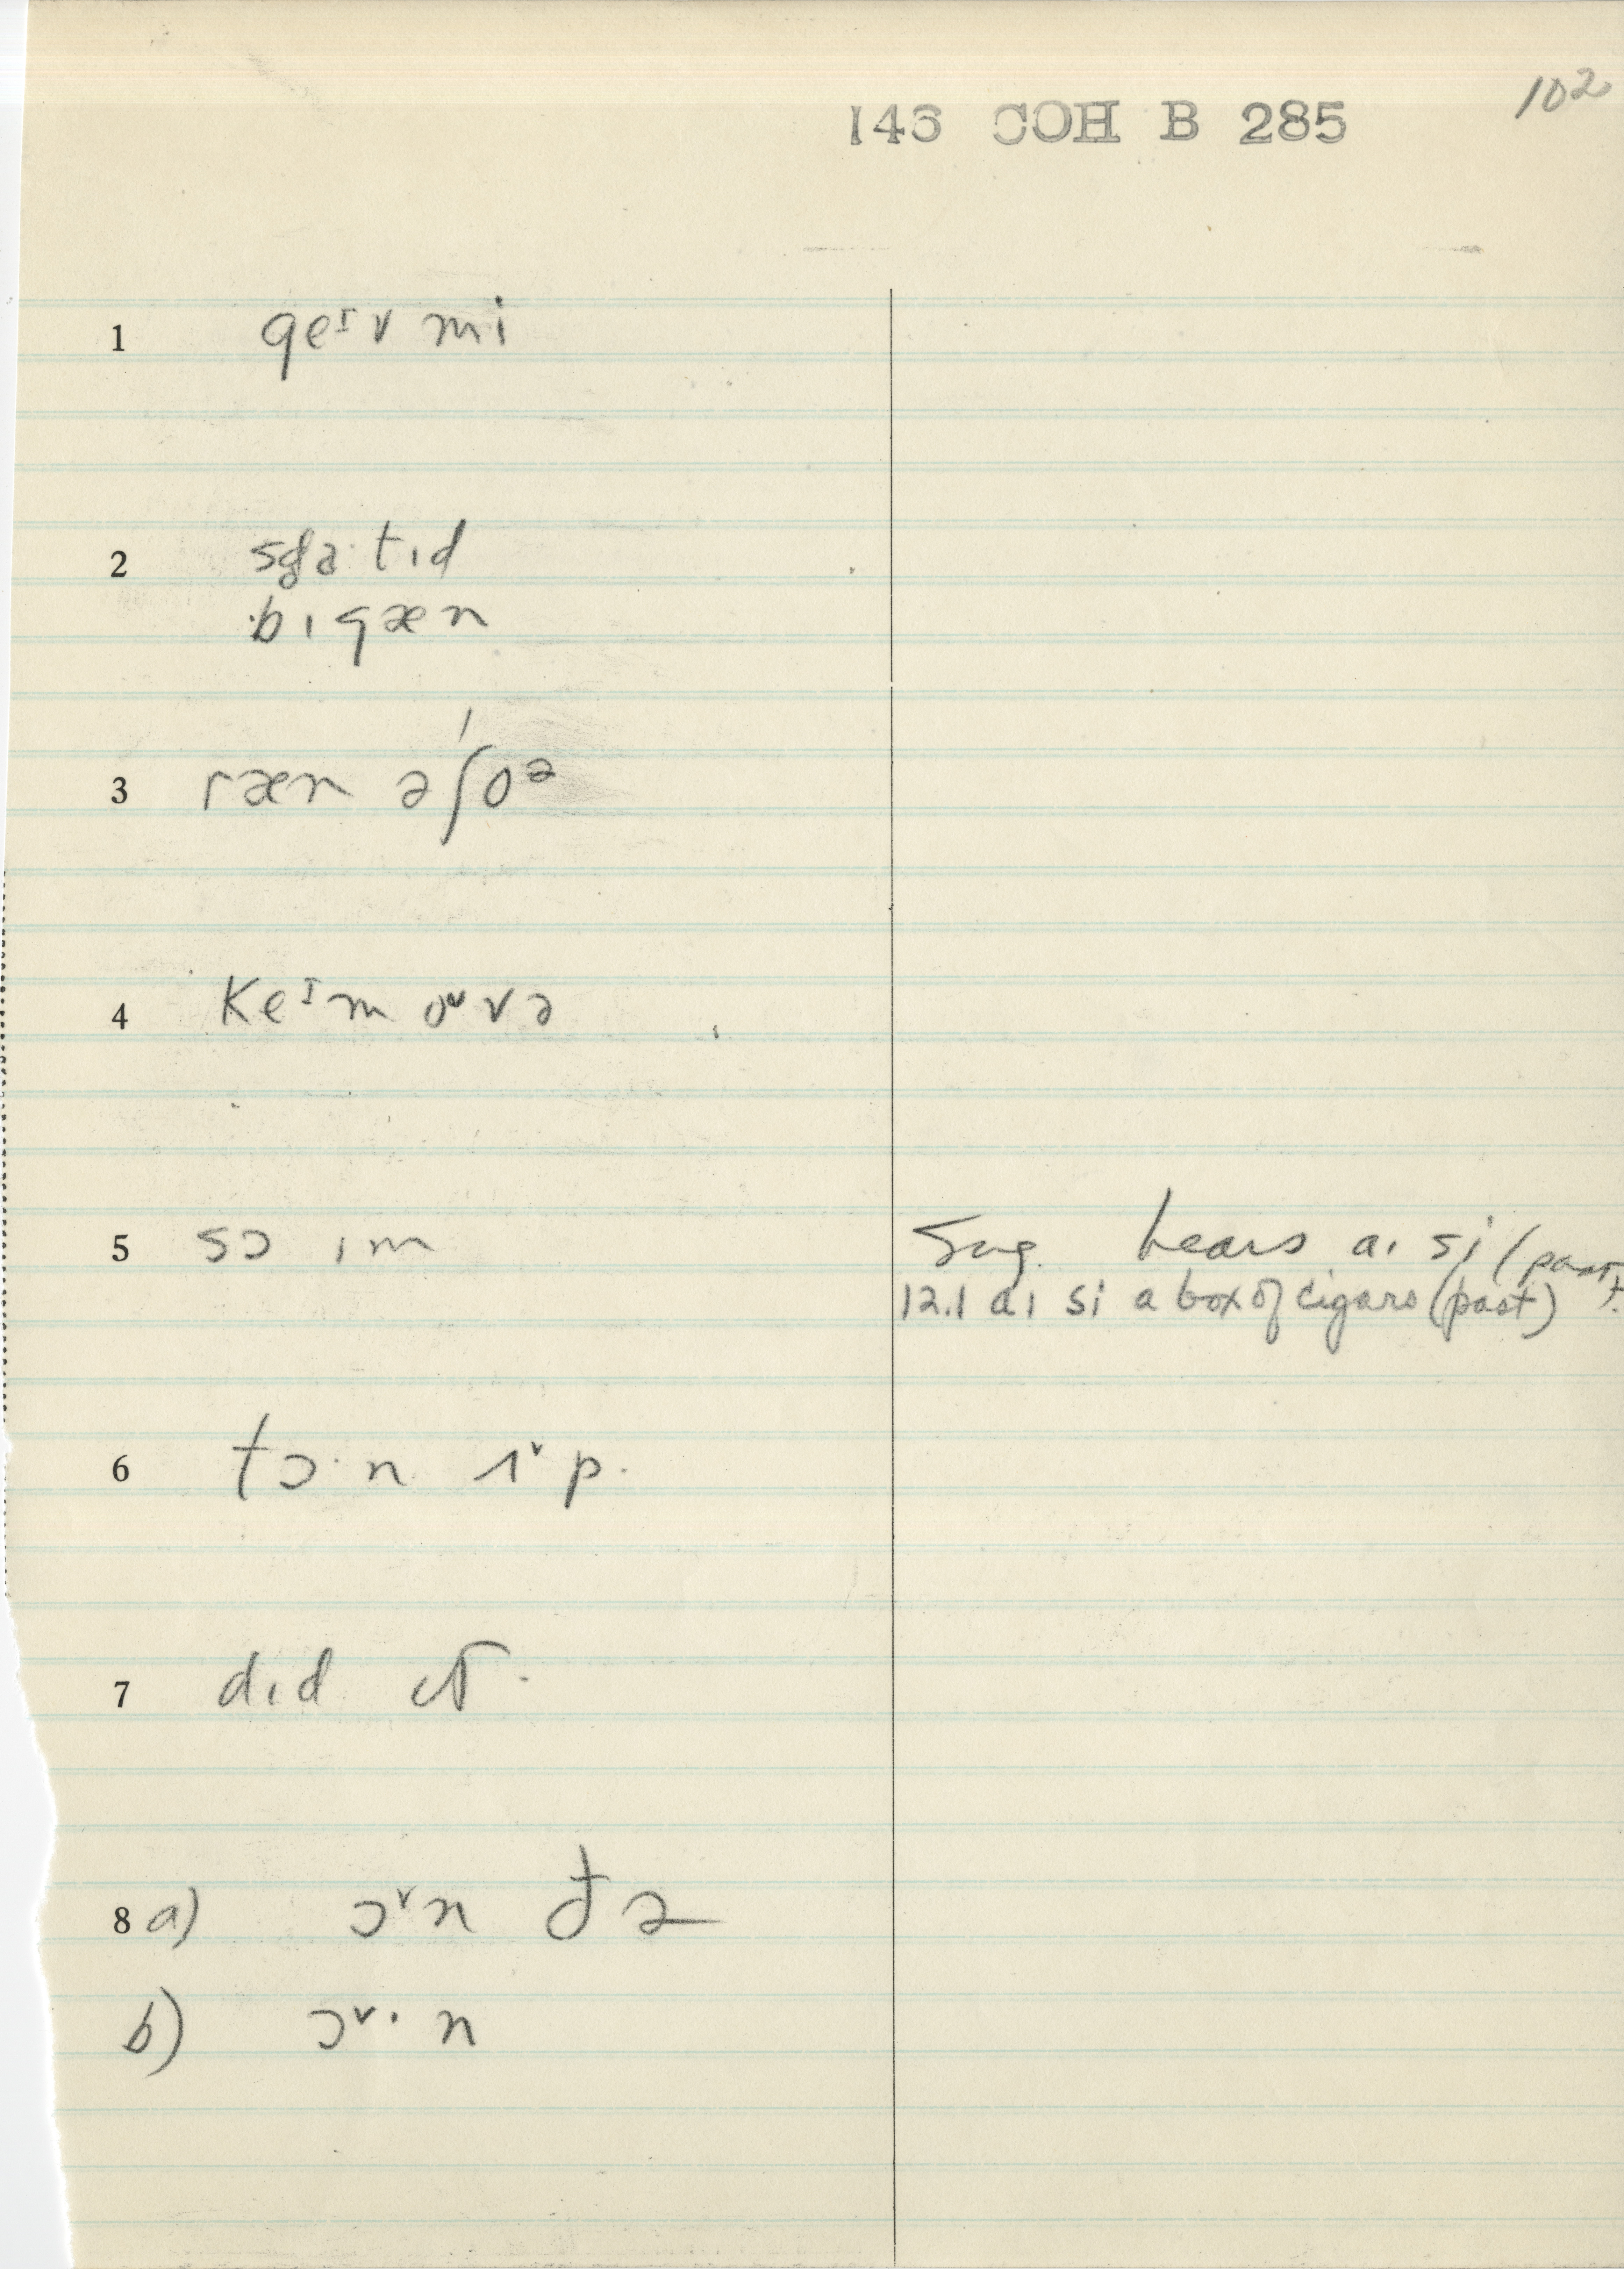 102
146 COH B 285
1 geᴵv mi
2 sda·tɪd
bɪgæn
3 ræn ə'ʃoᵊ
4 Keᴵm oᵛvə
5 sɔ ɪm
Sug. hears aɪ si (past).
12.1 aɪ si a box of cigars (past)
6 tɔ·n ʌᵛp.
7 dɪd
8 a) ɔᵛn đə
b) ɔᵛ· n